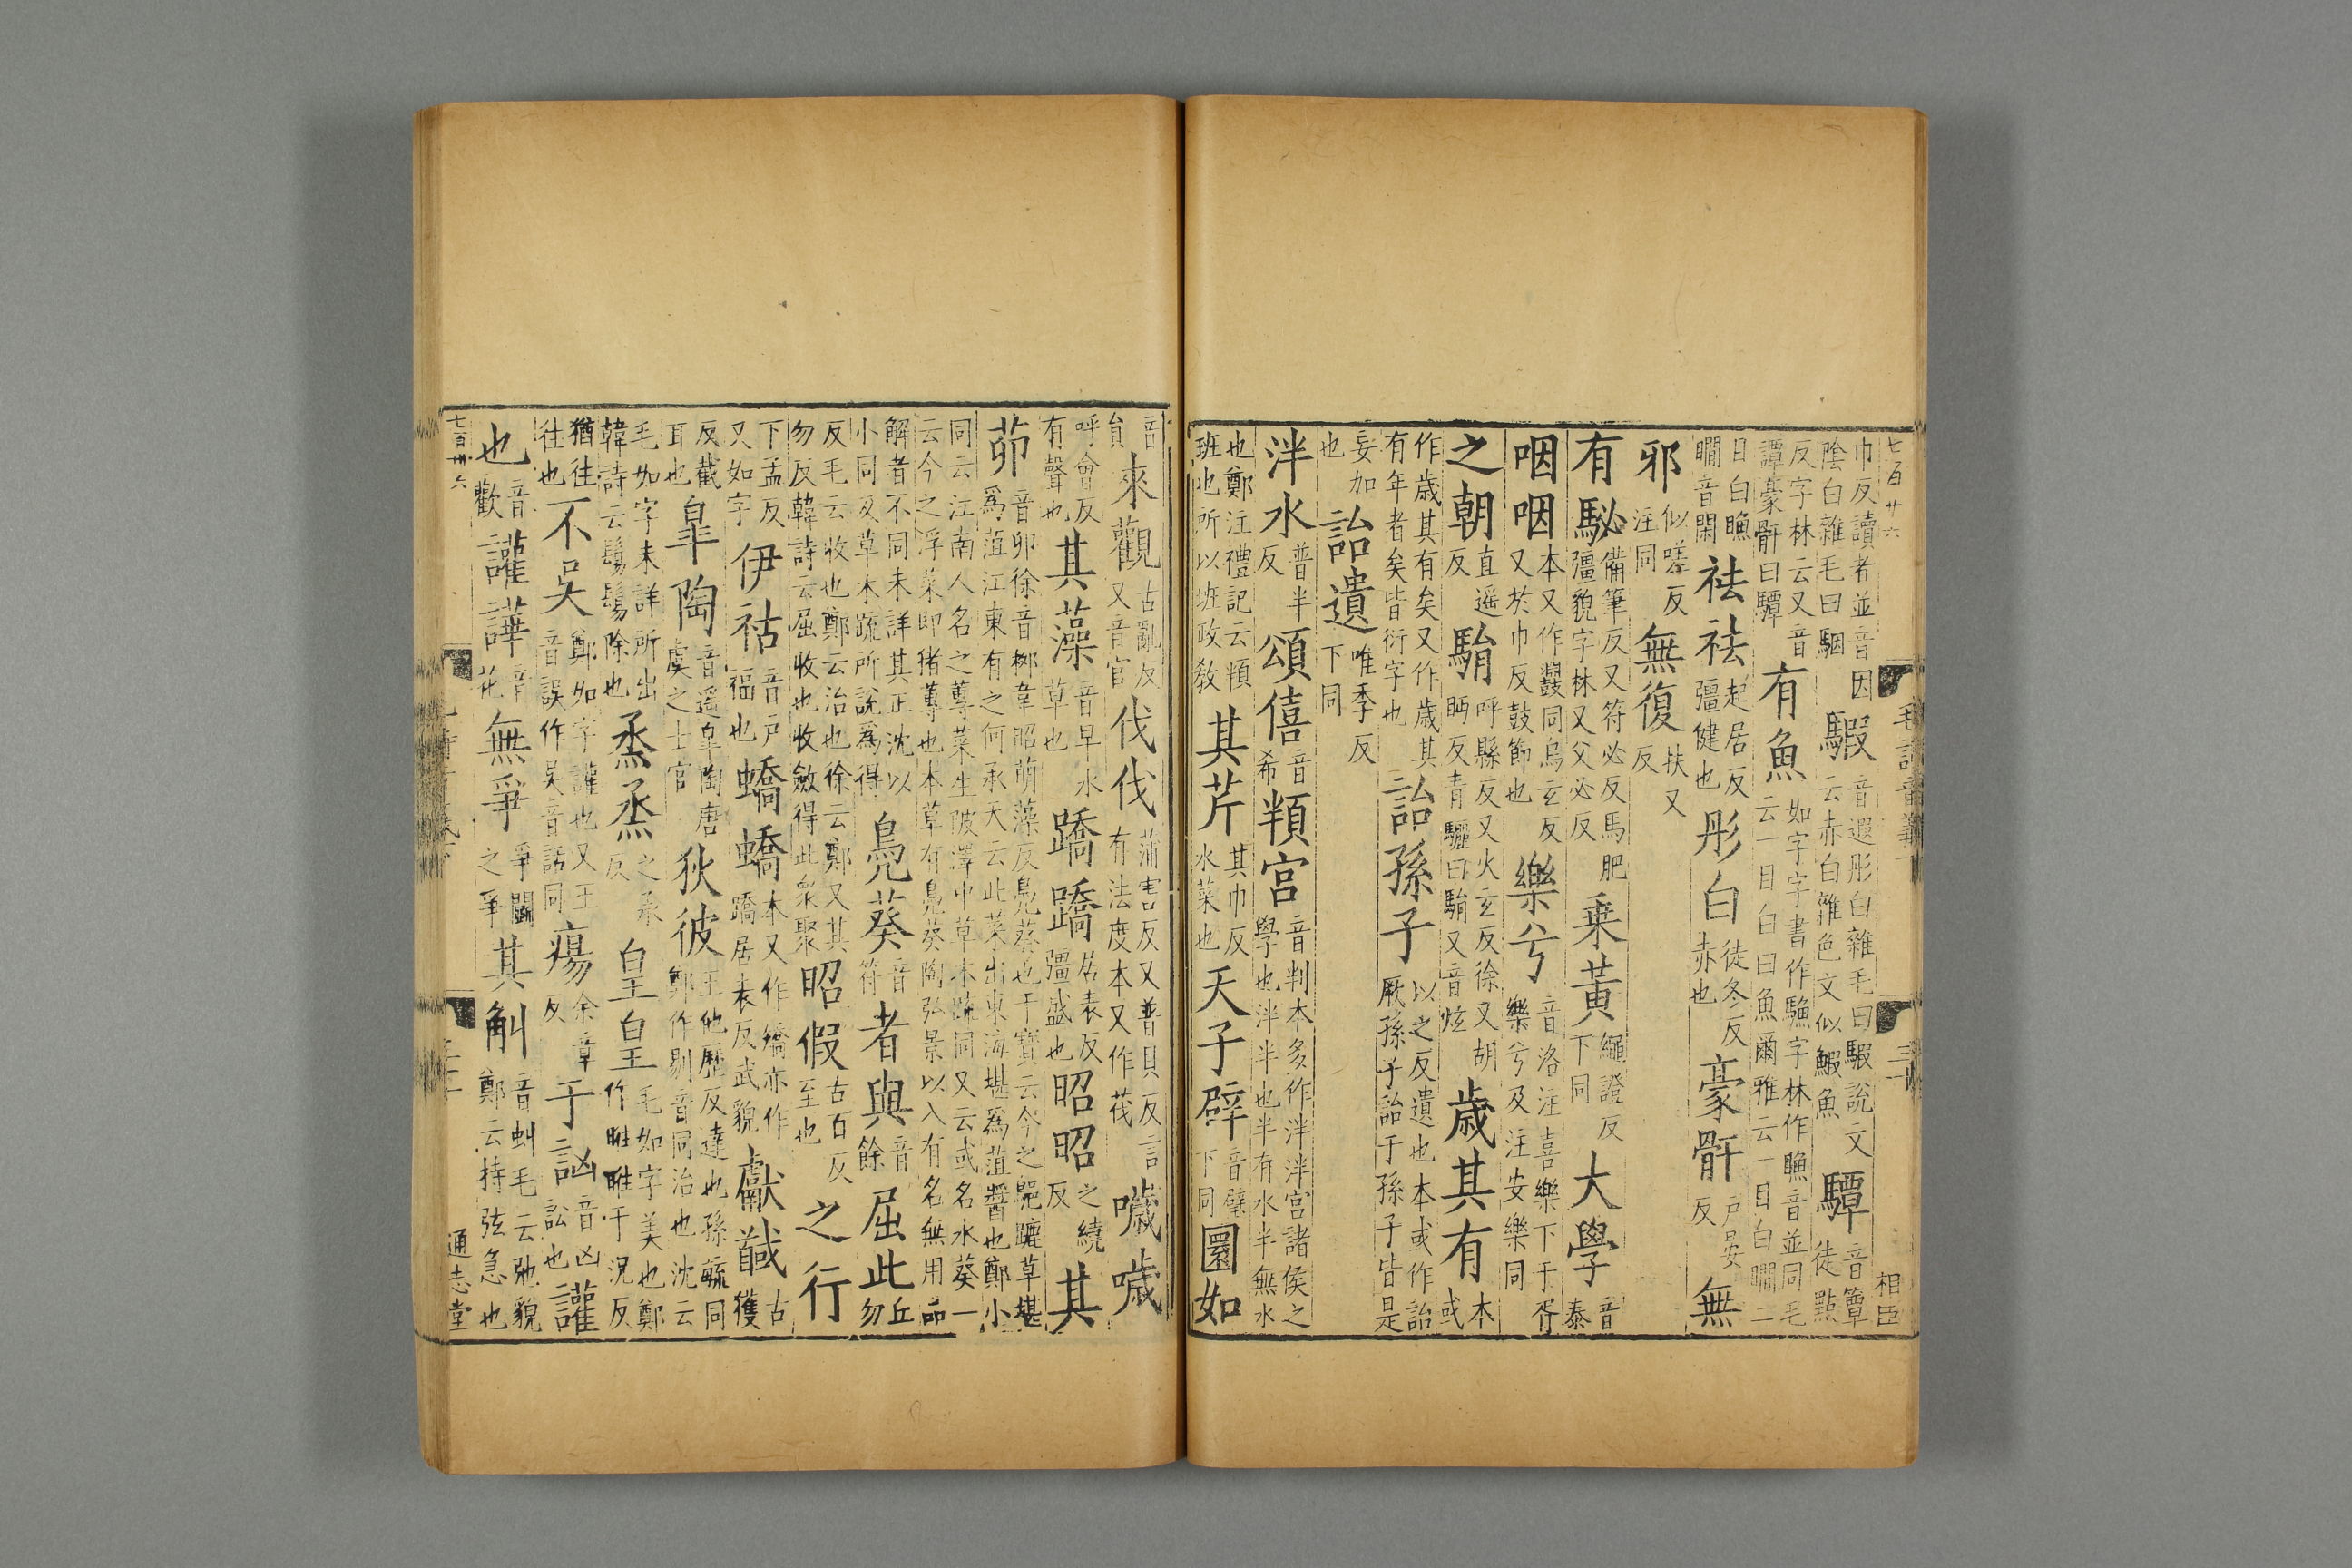 七百廿六
毛詩音義
三十
相臣
巾反讀者並音因
陰白雜毛曰駰
騢
音遐彤白雜毛曰騢說文
云赤白雜色文似鰕魚
驔
音簟
徒點
反字林云又音
譚豪骭曰驔
有魚
如字字書作䲣字林作䁩音並同毛
云一目白曰魚爾雅云一目白瞯二
目白䁩
瞯音閑
袪袪
起居反
彊健也
彤白
徒冬反
赤也
豪骭
戶晏
反
無
邪
似嗟反
注同
無復
扶又
反
有駜
備筆反又符必反馬肥
彊貌字林又父必反
乗黃
繩證反
下同
大學
音
泰
咽咽
本又作鼝同烏玄反
又於巾反鼓節也
樂兮
音洛注喜樂下于胥
樂兮及注安樂同
之朝
直遥
反
駽
呼縣反又火玄反徐又胡
眄反青驪曰駽又音炫
歲其有
本
或
作歲其有矣又作歲其
有年者矣皆衍字也
詒孫子
以之反遺也本或作詒
厥孫子詒于孫子皆是
妄加
也
詒遺
唯季反
下同
泮水
普半
反
頌僖
音
希
頖宮
音判本多作泮泮宮諸侯之
學也泮半也半有水半無水
也鄭注禮記云頖
班也所以班政教
其芹
其巾反
水菜也
天子辟
音璧
下同
圜如
音
員
來觀
古亂反
又音官
伐伐
蒲害反又普貝反言
有法度本又作筏
噦噦
呼會反
有聲也
其藻
音早水
草也
蹻蹻
居表反
彊盛也
昭昭
之繞
反
其
茆
音卯徐音柳韋昭萌藻反鳧葵也干寶云今之䳍蹗草堪
爲葅江東有之何承天云此菜出東海堪爲葅醬也鄭小
同云江南人名之蓴菜生陂澤中草木疏同又云或名水葵一
云今之浮菜即猪蓴也本草有鳧葵陶弘景以入有名無用品
解者不同未詳其正沈以
小同及草木疏所說爲得
鳧葵
音
符
者與
音
餘
屈此
丘
勿
反毛云收也鄭云治也徐云鄭又其
勿反韓詩云屈收也收斂得此衆聚
昭假
古百反
至也
之行
下孟反
又如字
伊祜
音戶
福也
蟜蟜
本又作矯亦作
蹻居表反武貌
獻馘
古
獲
反截
耳也
皐陶
音遥皐陶唐
虞之士官
狄彼
王他歷反遠也孫毓同
鄭作剔音同治也沈云
毛如字未詳所出
韓詩云鬄鬄除也
烝烝
之承
反
皇皇
毛如字美也鄭
作暀暀于況反
猶往
往也
不吳
鄭如字讙也又王
音誤作吴音話同
瘍
余章
反
于訩
音凶
訟也
讙
也
音
歡
讙譁
音
花
無爭
爭鬬
之爭
其觓
音虯毛云弛貌
鄭云持弦急也
七百卅六
通志堂